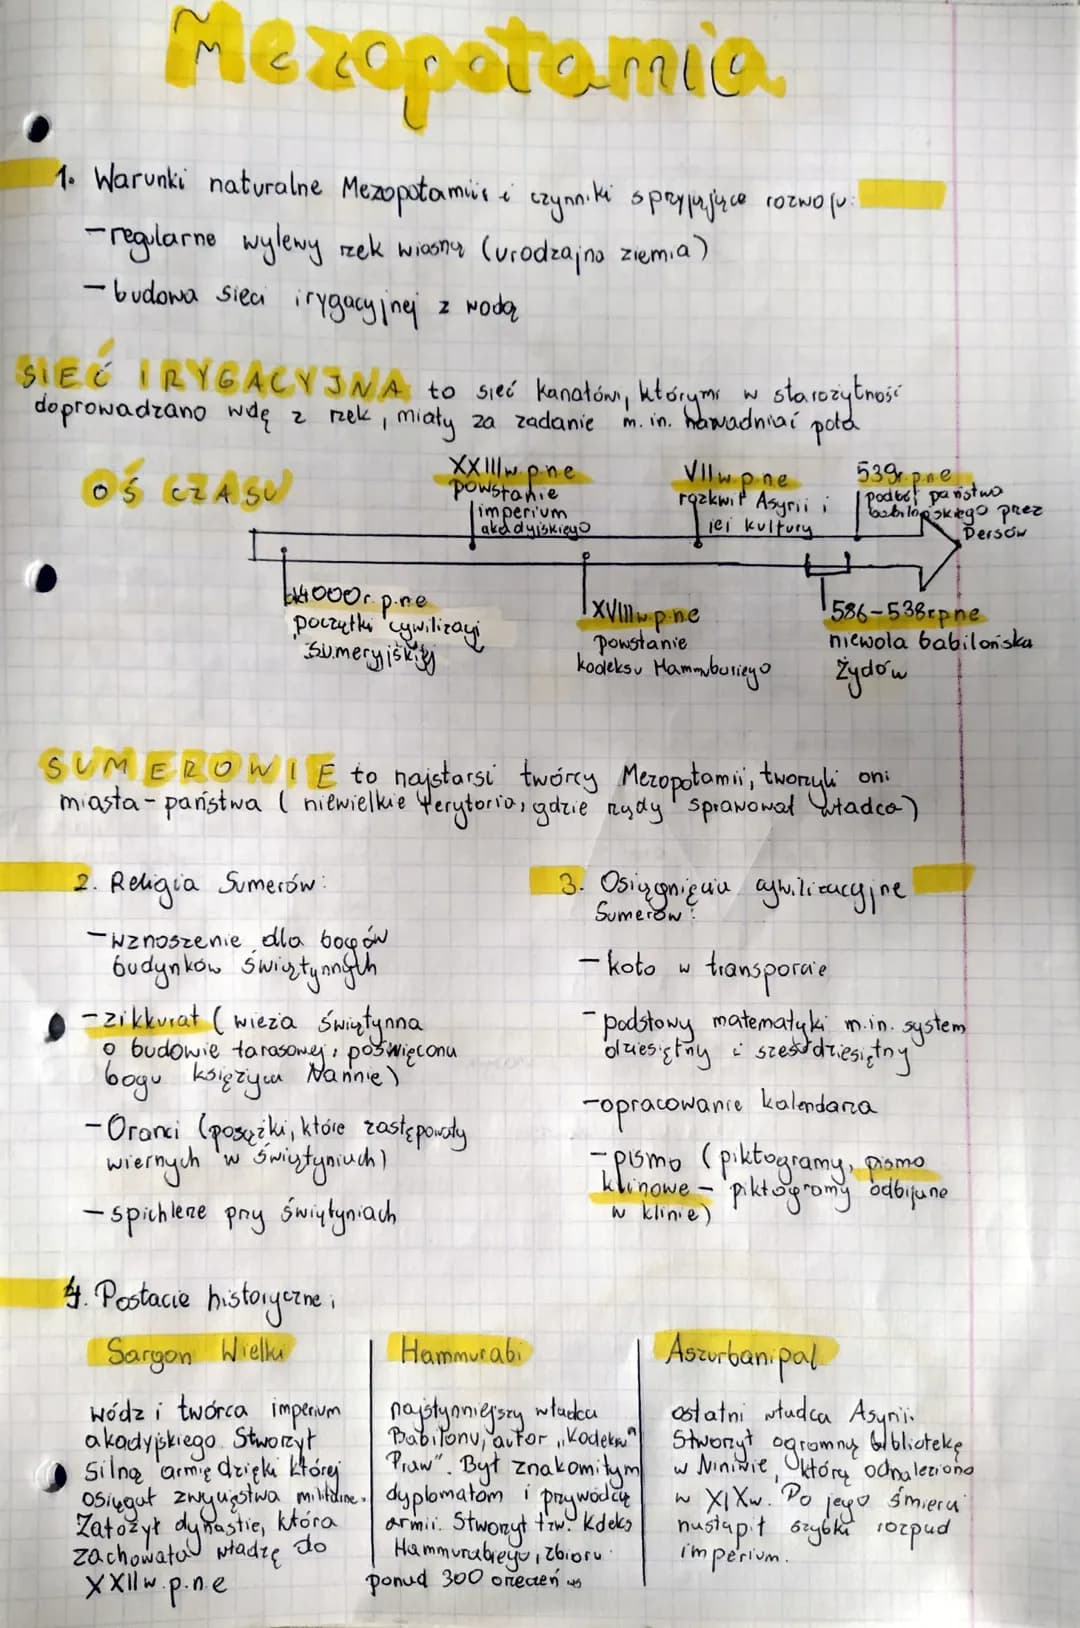 Mezopotamia
1. Warunki naturalne Mezopotamii i czynniki sprzyjające rozwoju:
- regularne wylewy rzek wiosną (urodzajna ziemia)
- budowa sieci irygacyjnej z wodą
SIEĆ IRYGACYJNA to sieć kanałów, którymi w starożytność
doprowadzano wdę z rzek, miały za zadanie m.in. nawadniać pola
OŚ CZASU
XXIII w.p.ne
powstanie
imperium
akadyjskiego
VII w.p.ne
rozkwit Asyrii i
jej kultury
539r.p.ne
podbój państwa
babilońskiego przez
Persów
4000r. p.ne
początki cywilizacji
sumeryjskiej
XVIII w.p.ne
powstanie
kodeksu Hammuburiego
586-538r.pne
niewola babilońska
Żydów
SUMEROWIE to najstarsi twórcy Mezopotamii, tworzyli oni
miasta-państwa (niewielkie terytoria, gdzie rządy sprawował władca)
2. Religia Sumerów:
- wznoszenie dla bogów
budynków świątynnych
- zikkurat (wieża świątynna
o budowie tarasowej, poświęcona
bogu księżyca Nannie)
- Oranci (posążki, które zastępowały
wiernych w świątyniach)
- spichlerze przy świątyniach
3. Osiągnięcia cywilizacyjne
Sumerów:
- koło w transporcie
- podstawy matematyki m.in. system
dziesiętny i sześćdziesiętny
- opracowanie kalendarza
- pismo (piktogramy, pismo
klinowe - piktogramy odbijane
w klinie)
4. Postacie historyczne;
Sargon Wielki
wódz i twórca imperium
akadyjskiego. Stworzył
silną armię dzięki której
osiągał zwycięstwa militarne.
Założył dynastie, która
zachowała władzę do
XXII w.p.n.e
Hammurabi
najsłynniejszy władca
Babilonu, autor „Kodeksu
Praw". Był znakomitym
dyplomatom i przywódcą
armii. Stworzył tzw. Kdeks
Hammurabiego, zbioru
ponad 300 orzeczeń
Aszurbanipal
ostatni władca Asyrii.
Stworzył ogromną bibliotekę
w Niniwie, którą odnaleziono
w XIX w. Po jego śmierci
nastąpił szybki rozpad
imperium.